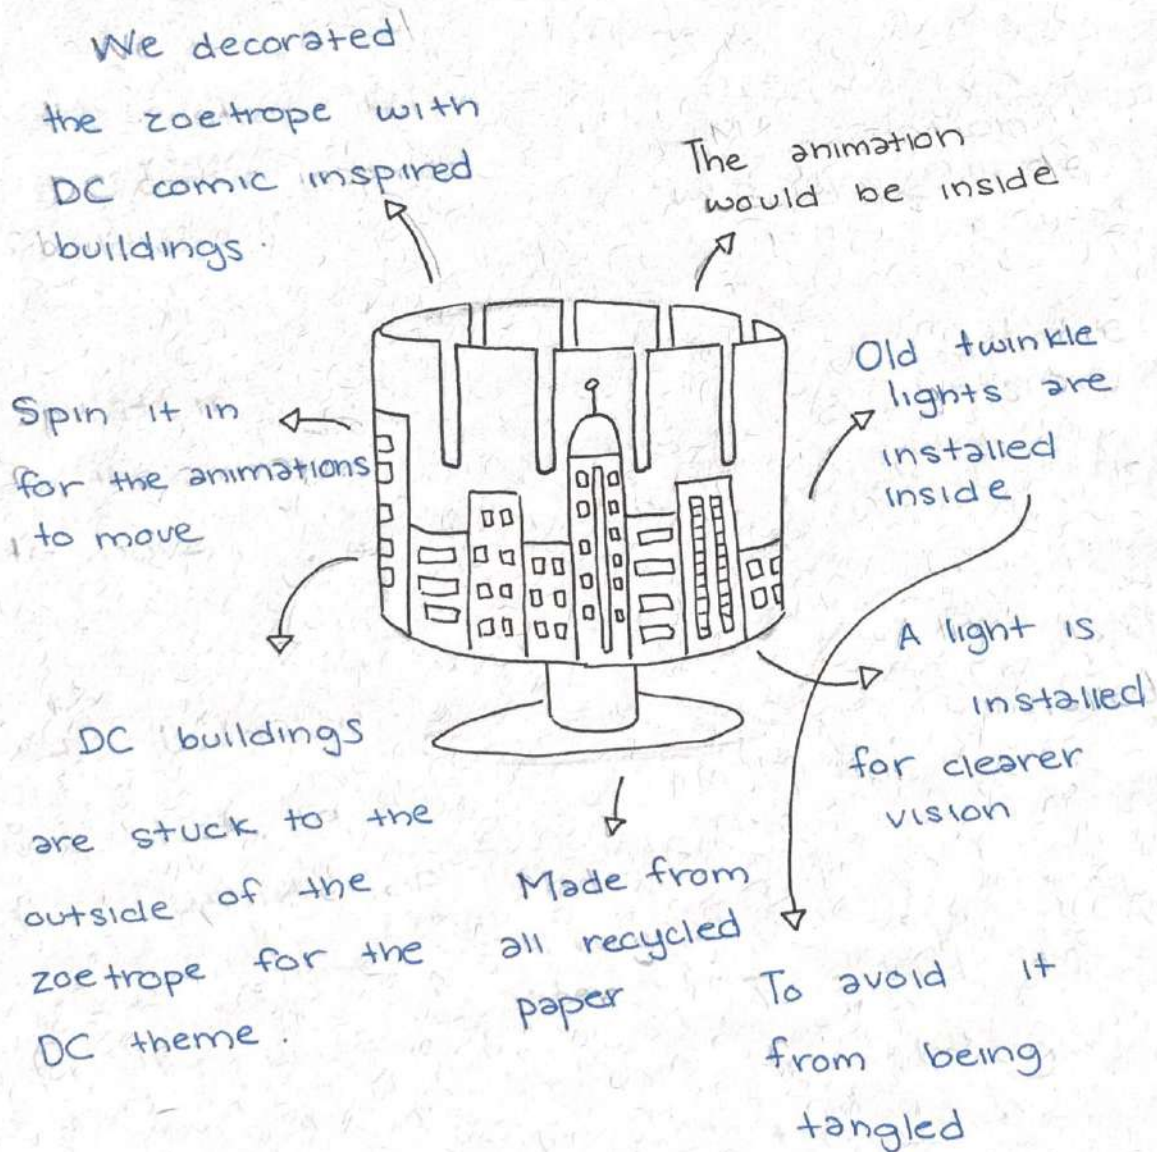 We decorated
the zoetrope with
DC comic inspired
buildings.
The animation
would be inside
Old twinkle
lights are
installed
inside
Spin it in
for the animations
to move
A light is
installed
for clearer
vision
DC buildings
are stuck to the
outside of the
zoetrope for the
DC theme.
Made from
all recycled
paper
To avoid it
from being
tangled